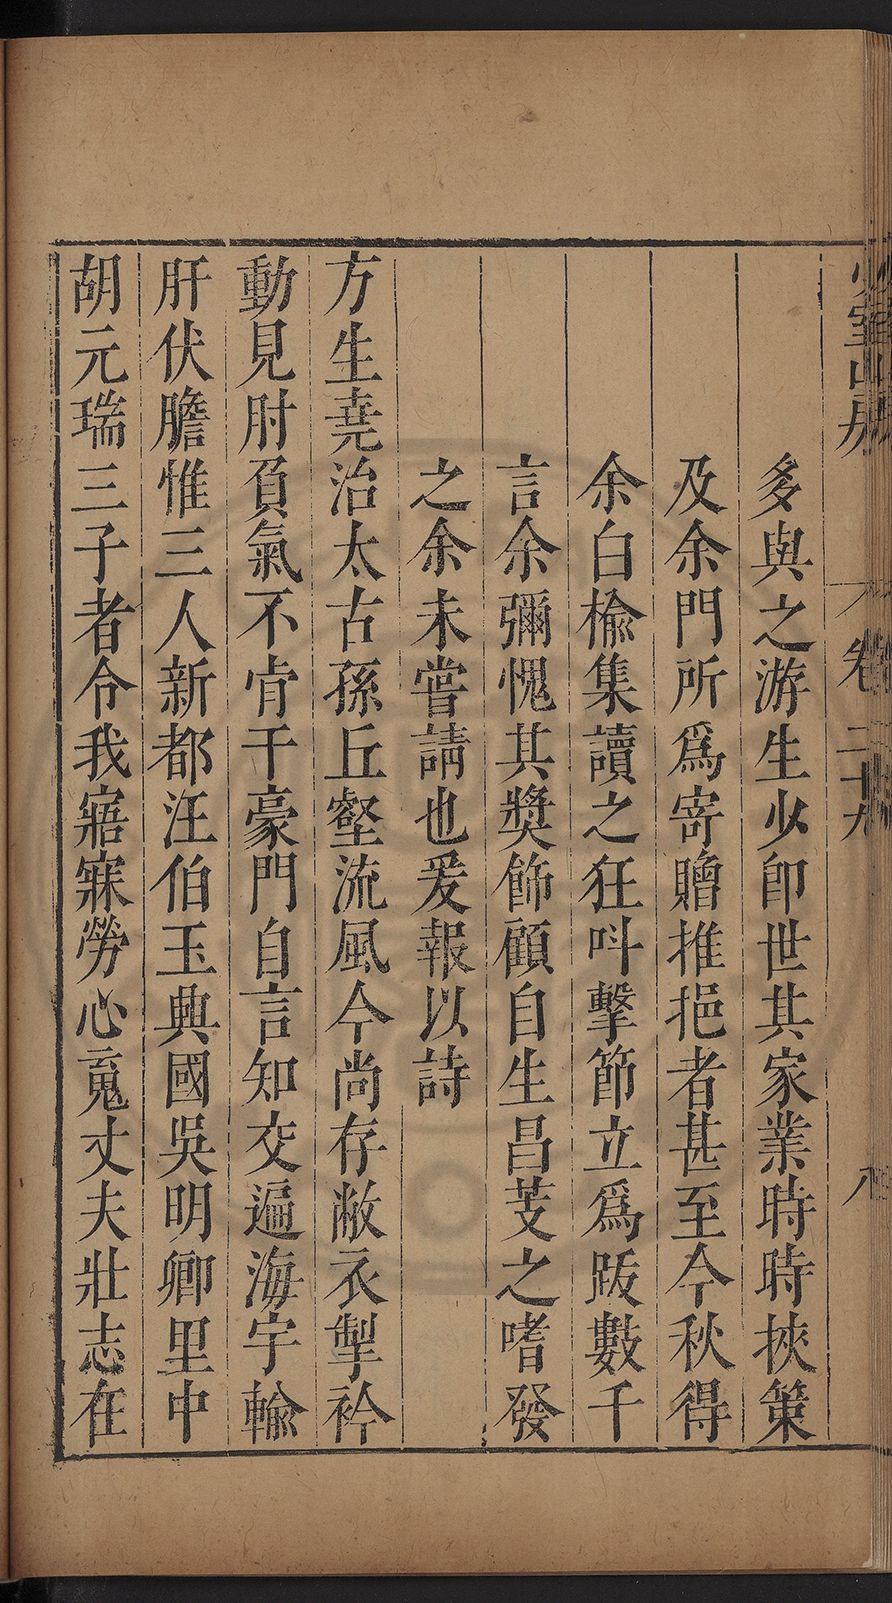 少室山房
卷二十九
八
多與之游生少卽世其家業時時挾策
及余門所爲寄贈推挹者甚至今秋得
余白楡集讀之狂呌擊節立爲跋數千
言余彌愧其獎飾顧自生昌芰之嗜發
之余未嘗請也爰報以詩
方生堯治太古孫丘壑流風今尚存敝衣掣衿
動見肘負氣不肯干豪門自言知交遍海宇輸
肝伏膽惟三人新都汪伯玉典國吳明卿里中
胡元瑞三子者令我寤寐勞心䰟丈夫壯志在